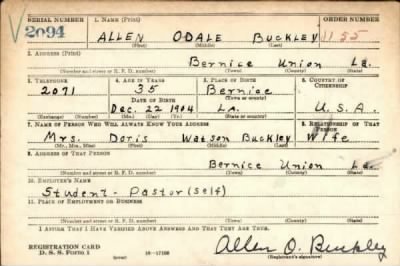 SERIAL NUMBER 1. NAME (Print) ORDER NUMBER
2094 ALLEN ODALE BUCKLEY 1155
(First) (Middle) (Last)
2. ADDRESS (Print)
Bernice Union La.
(Number and street or R. F. D. number) (Town) (County) (State)
3. TELEPHONE 4. AGE IN YEARS 5. PLACE OF BIRTH 6. COUNTRY OF CITIZENSHIP
2071 35 Bernice
DATE OF BIRTH (Town or county)
Dec. 22 1904 LA. U.S.A.
(Mo.) (Day) (Yr.) (State or country)
7. NAME OF PERSON WHO WILL ALWAYS KNOW YOUR ADDRESS 8. RELATIONSHIP OF THAT PERSON
Mrs. Doris Watson Buckley Wife
(Mr., Mrs., Miss) (First) (Middle) (Last)
9. ADDRESS OF THAT PERSON
Bernice Union La.
(Number and street or R. F. D. number) (Town) (County) (State)
10. EMPLOYER'S NAME
Student - Pastor (self)
11. PLACE OF EMPLOYMENT OR BUSINESS
(Number and street or R. F. D. number) (Town) (County) (State)
I AFFIRM THAT I HAVE VERIFIED ABOVE ANSWERS AND THAT THEY ARE TRUE.
REGISTRATION CARD
D. S. S. FORM 1 16-17105 Allen O. Buckley
(Registrant's signature)